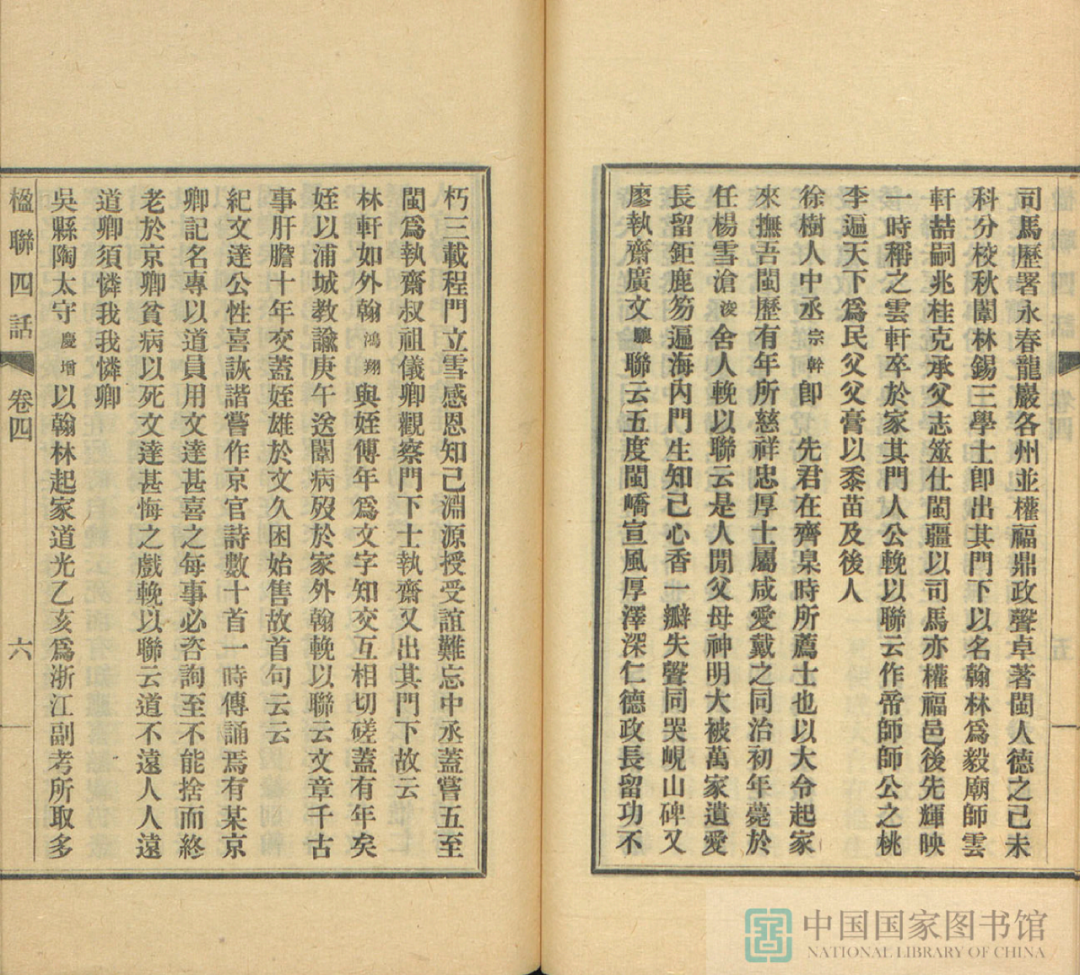 司馬歷署永春龍巖各州並權福鼎政聲卓著閩人德之己未
科分校秋闈林錫三學士卽出其門下以名翰林爲毅廟師雲
軒喆嗣兆桂克承父志筮仕閩疆以司馬亦權福邑後先輝映
一時稱之雲軒卒於家其門人公輓以聯云作帝師師公之桃
李遍天下爲民父父膏以黍苗及後人
徐樹人中丞宗幹卽　先君在齊臬時所薦士也以大令起家
來撫吾閩歷有年所慈祥忠厚士屬咸愛戴之同治初年薨於
任楊雪滄浚舍人輓以聯云是人閒父母神明大被萬家遺愛
長留鉅鹿笏遍海內門生知己心香一瓣失聲同哭峴山碑又
廖執齋廣文驤聯云五度閩嶠宣風厚澤深仁德政長留功不
朽三載程門立雪感恩知己淵源授受誼難忘中丞蓋嘗五至
閩爲執齋叔祖儀卿觀察門下士執齋又出其門下故云
林軒如外翰鴻翔與姪傅年爲文字知交互相切磋蓋有年矣
姪以浦城教諭庚午送闈病歿於家外翰輓以聯云文章千古
事肝膽十年交蓋姪雄於文久困始售故首句云云
紀文達公性喜詼諧嘗作京官詩數十首一時傳誦焉有某京
卿記名專以道員用文達甚喜之每事必咨詢至不能捨而終
老於京卿貧病以死文達甚悔之戲輓以聯云道不遠人人遠
道卿須憐我我憐卿
吳縣陶太守慶增以翰林起家道光乙亥爲浙江副考所取多
楹聯四話　卷四　六
中国国家图书馆
NATIONAL LIBRARY OF CHINA